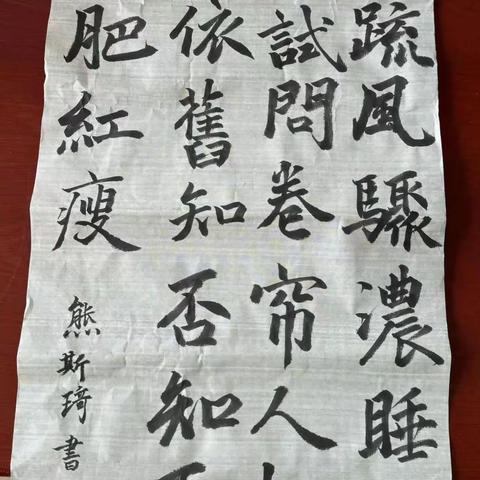 疏風驟濃睡
試問卷帘人
依舊知否知
肥紅瘦
熊斯琦書